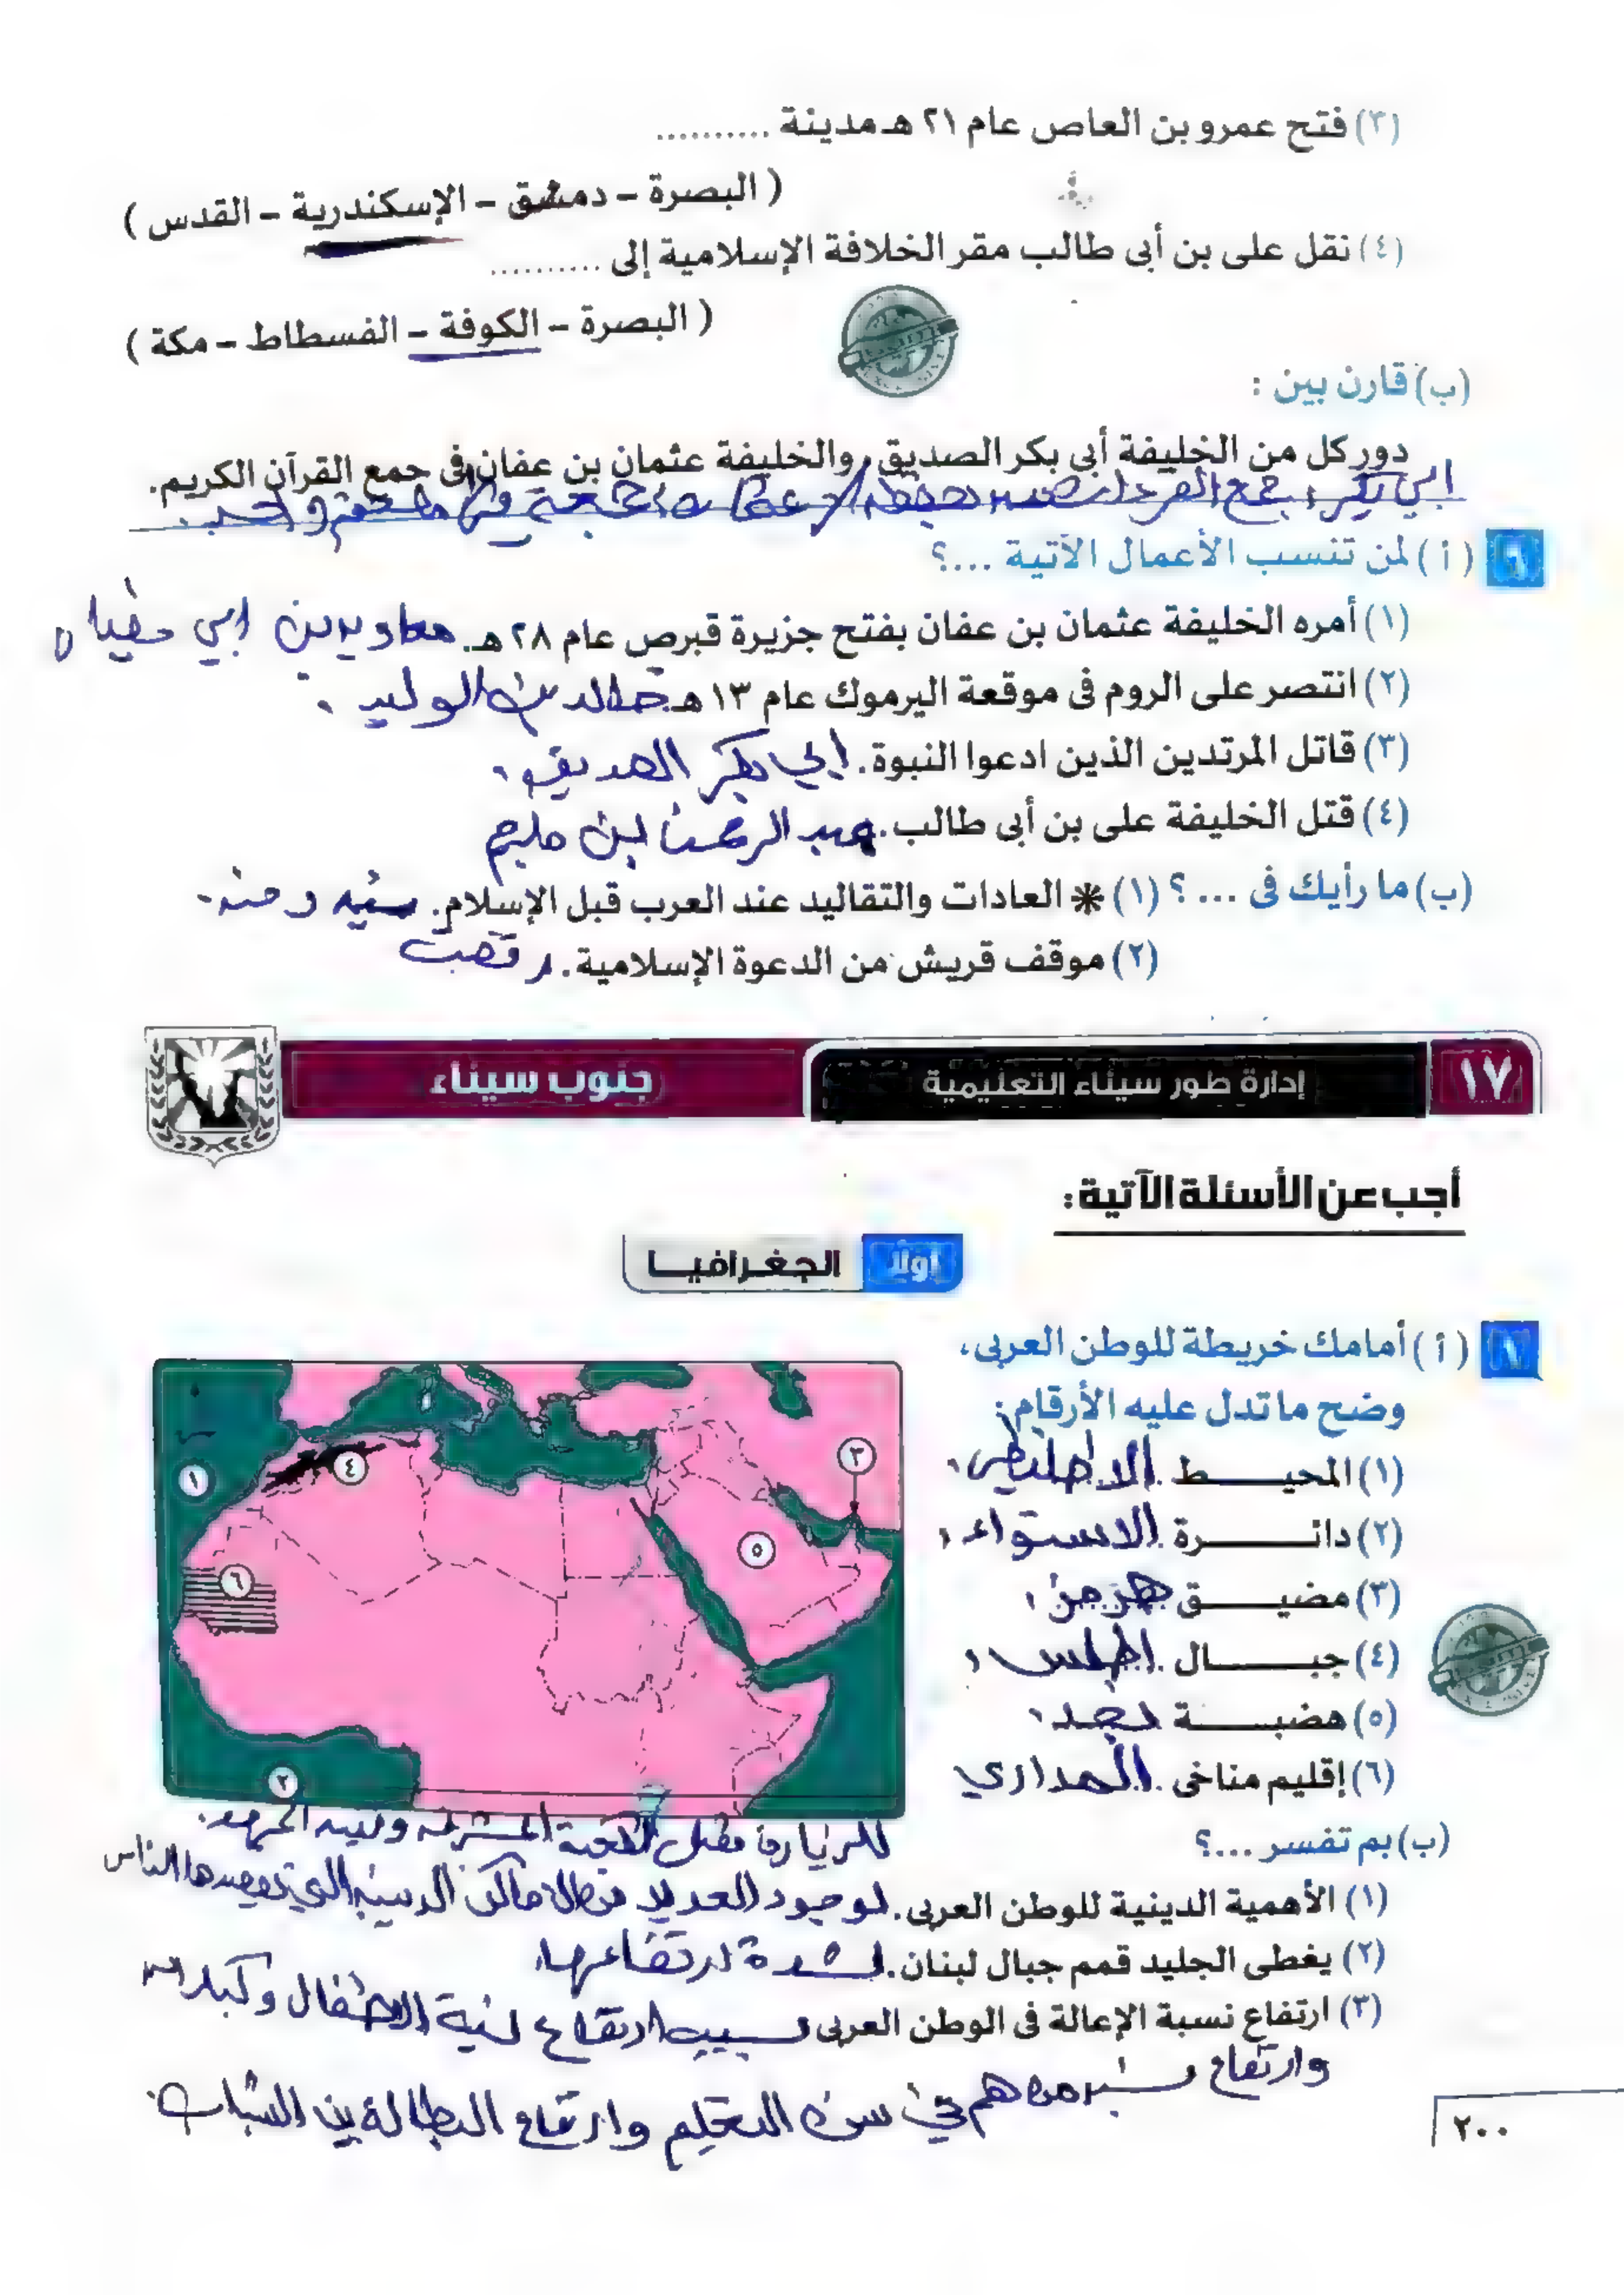 (٣) فتح عمرو بن العاص عام ٢١ هـ مدينة ..........
( البصرة - دمشق - الإسكندرية - القدس )
(٤) نقل على بن أبى طالب مقر الخلافة الإسلامية إلى ..........
( البصرة - الكوفة - الفسطاط - مكة )
(ب) قارن بين :
دور كل من الخليفة أبى بكر الصديق، والخليفة عثمان بن عفان فى جمع القرآن الكريم.
ابي بكر: جمع
٦ ( أ ) لمن تنسب الأعمال الآتية ...؟
(١) أمره الخليفة عثمان بن عفان بفتح جزيرة قبرص عام ٢٨ هـ. معاويه بن ابي سفيان
(٢) انتصر على الروم فى موقعة اليرموك عام ١٣ هـ خالد بن الوليد .
(٣) قاتل المرتدين الذين ادعوا النبوة. ابي بكر الصديق .
(٤) قتل الخليفة على بن أبى طالب. عبد الرحمن ابن ملجم
(ب) ما رأيك فى ... ؟ (١) * العادات والتقاليد عند العرب قبل الإسلام. سيئه و حسنه.
(٢) موقف قريش من الدعوة الإسلامية. رفضت
١٧ إدارة طور سيناء التعليمية جنوب سيناء
أجب عن الأسئلة الآتية :
أولاً الجغرافيا
( أ ) أمامك خريطة للوطن العربى،
وضح ما تدل عليه الأرقام :
(١) المحيط الاطلنطي .
(٢) دائرة الاستواء .
(٣) مضيق هرمز .
(٤) جبال اطلس .
(٥) هضبة نجد .
(٦) إقليم مناخى المداري
١
٢
٣
٤
٥
٦
(ب) بم تفسر ...؟
للزيارة مثل الكعبة المشرفه وبيت المهد.
(١) الأهمية الدينية للوطن العربى. لوجود العديد من الاماكن الدينيه التي يقصدها الناس
(٢) يغطى الجليد قمم جبال لبنان. لشدة ارتفاعها
(٣) ارتفاع نسبة الإعالة فى الوطن العربى بسبب ارتفاع نسبة الاطفال وكبار السن
وارتفاع نسبة من هم في سن التعليم وارتفاع البطالة بين الشباب.
٢٠٠